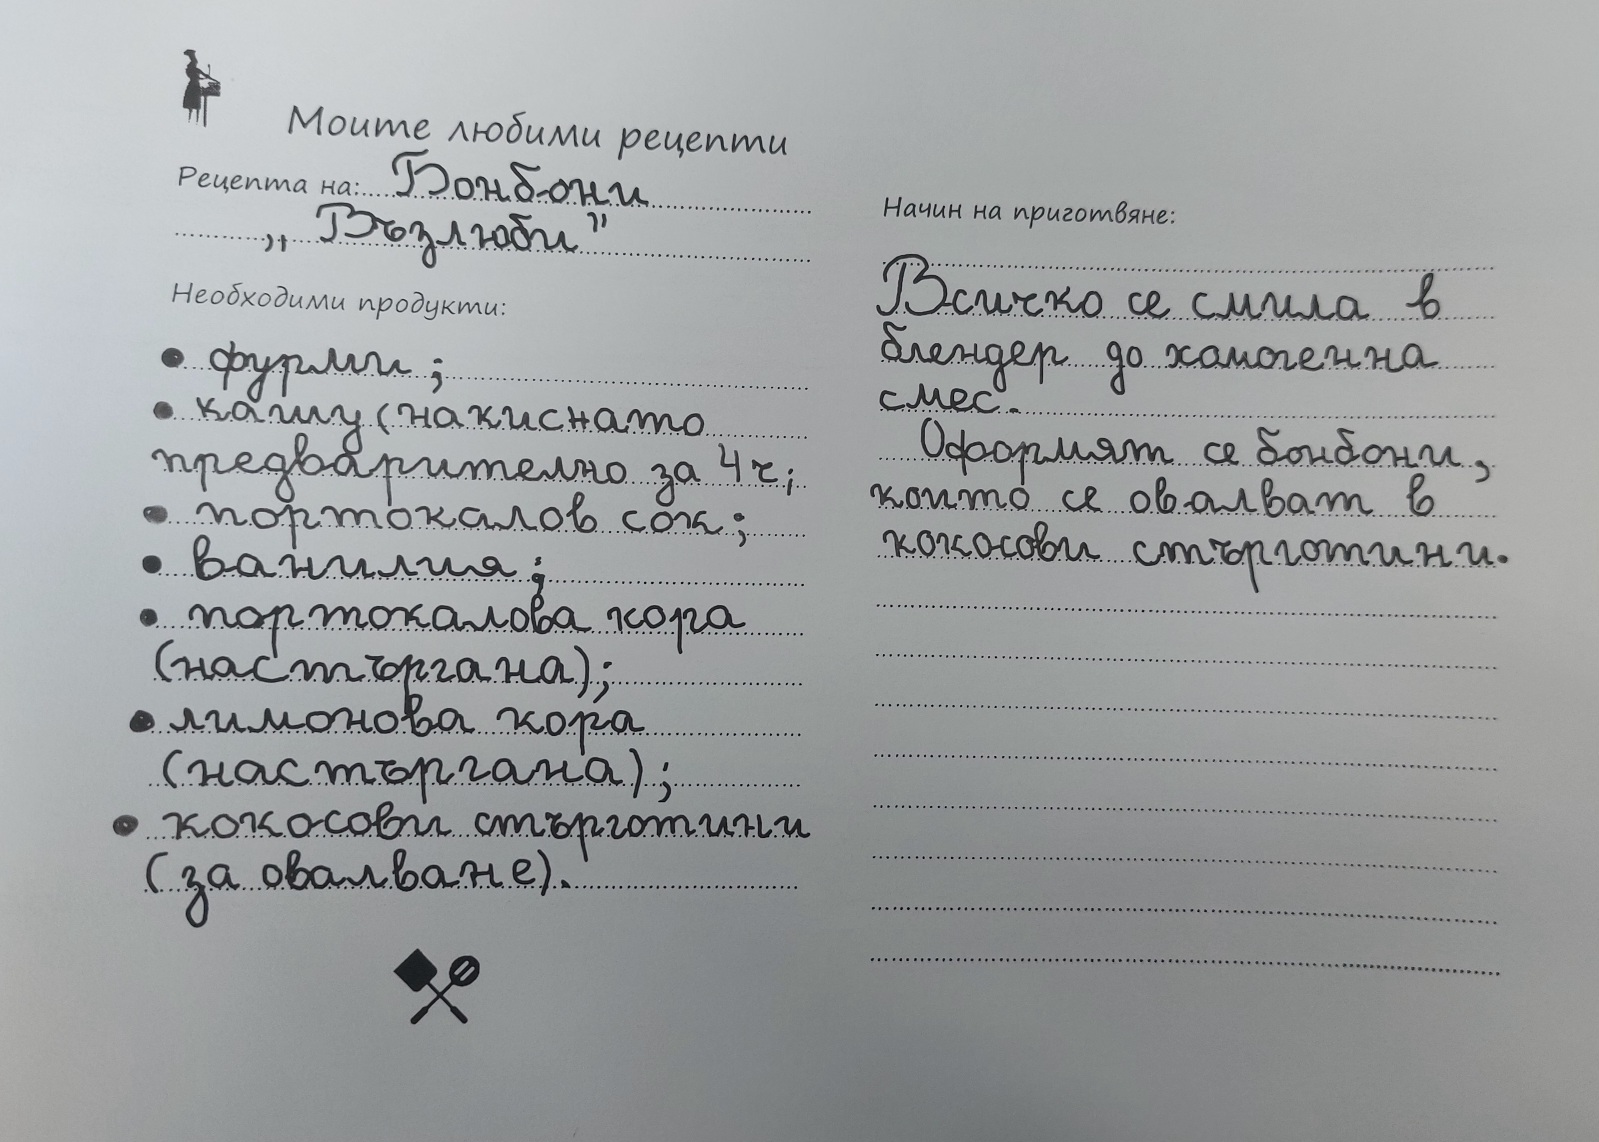 Моите любими рецепти
Рецепта на: Бонбони
„Възлюби”
Необходими продукти:
• фурми;
• кашу (накиснато
предварително за 4 ч;
• портокалов сок;
• ванилия;
• портокалова кора
(настъргана);
• лимонова кора
(настъргана);
• кокосови стърготини
(за овалване).
Начин на приготвяне:
Всичко се смила в
блендер до хомогенна
смес.
Оформят се бонбони,
които се овалват в
кокосови стърготини.